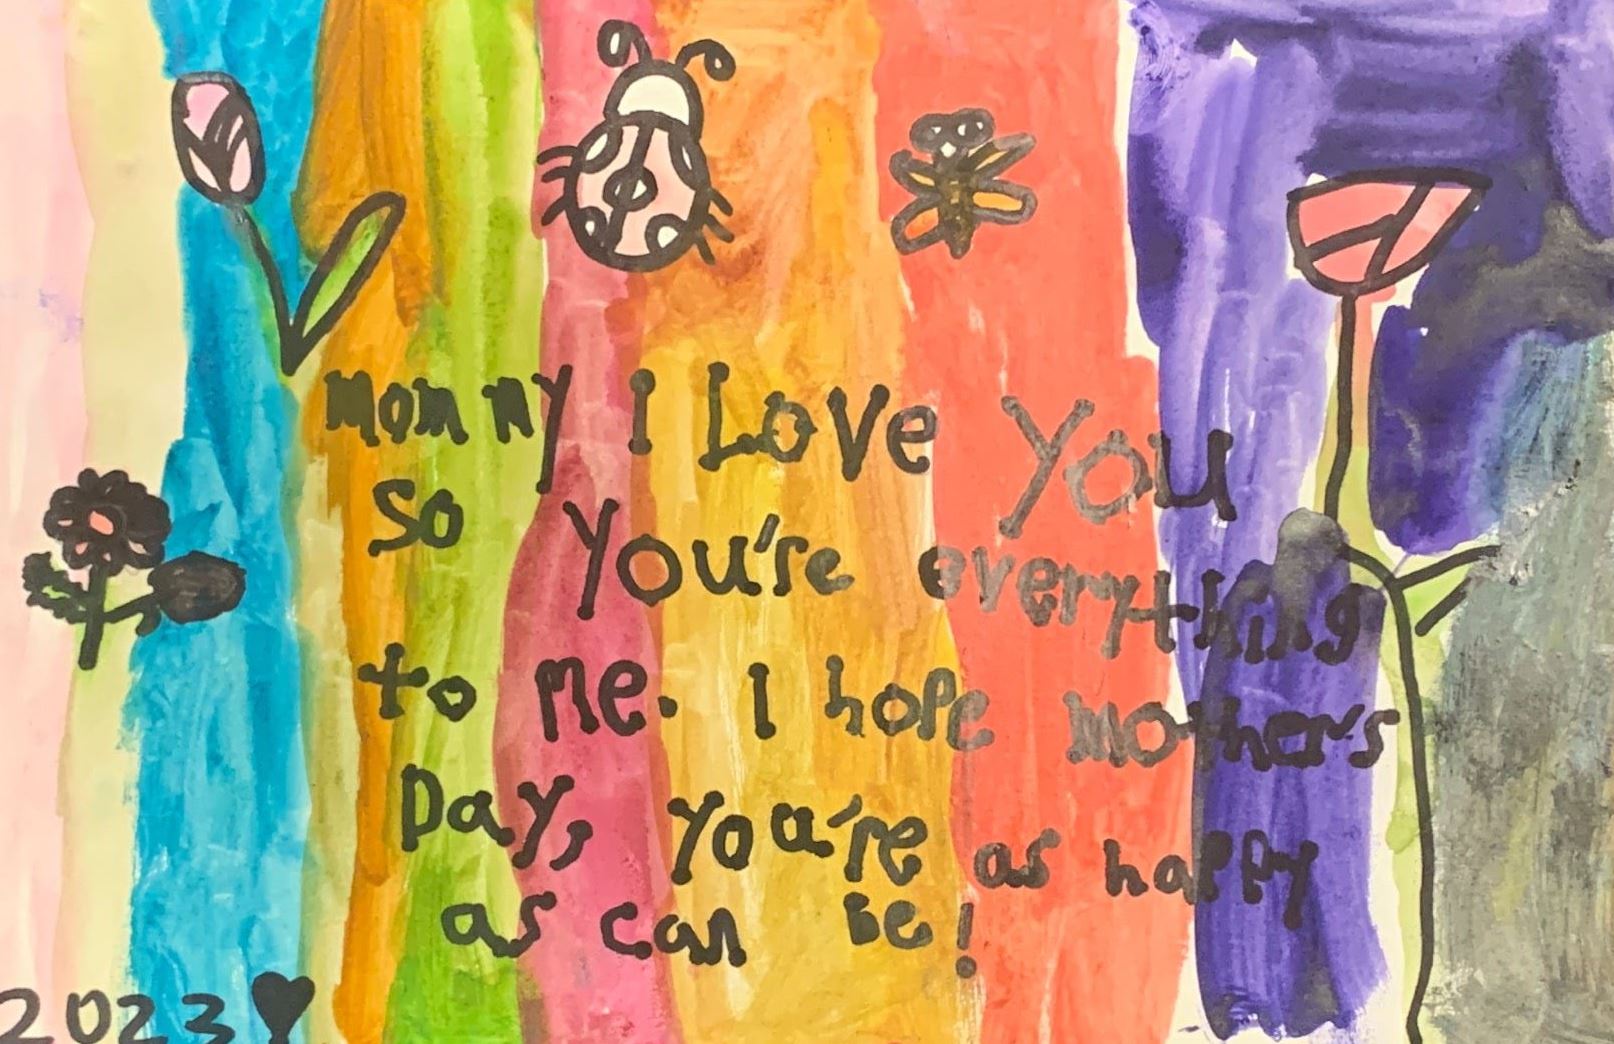 mommy i Love You
so You're everything
to me. I hope mothers
Day, you're as happy
as can Be!
2023